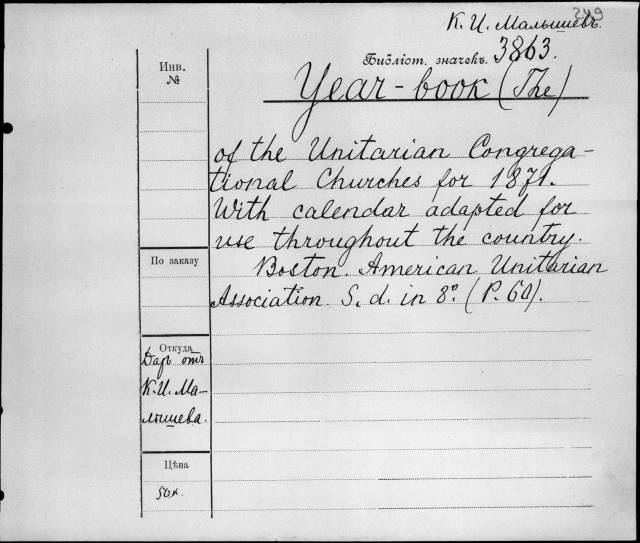 249
К. И. Малышевъ.
Библіот. значекъ. 3863.
Инв.
№
Year-book (The)
of the Unitarian Congrega-
tional Churches for 1871.
With calendar adapted for
use throughout the country.
По заказу
Boston. American Unitarian
Association. S. d. in 8°. (P. 60).
Откуда
Даръ отъ
К. И. Ма-
лышева.
Цѣна
50 к.